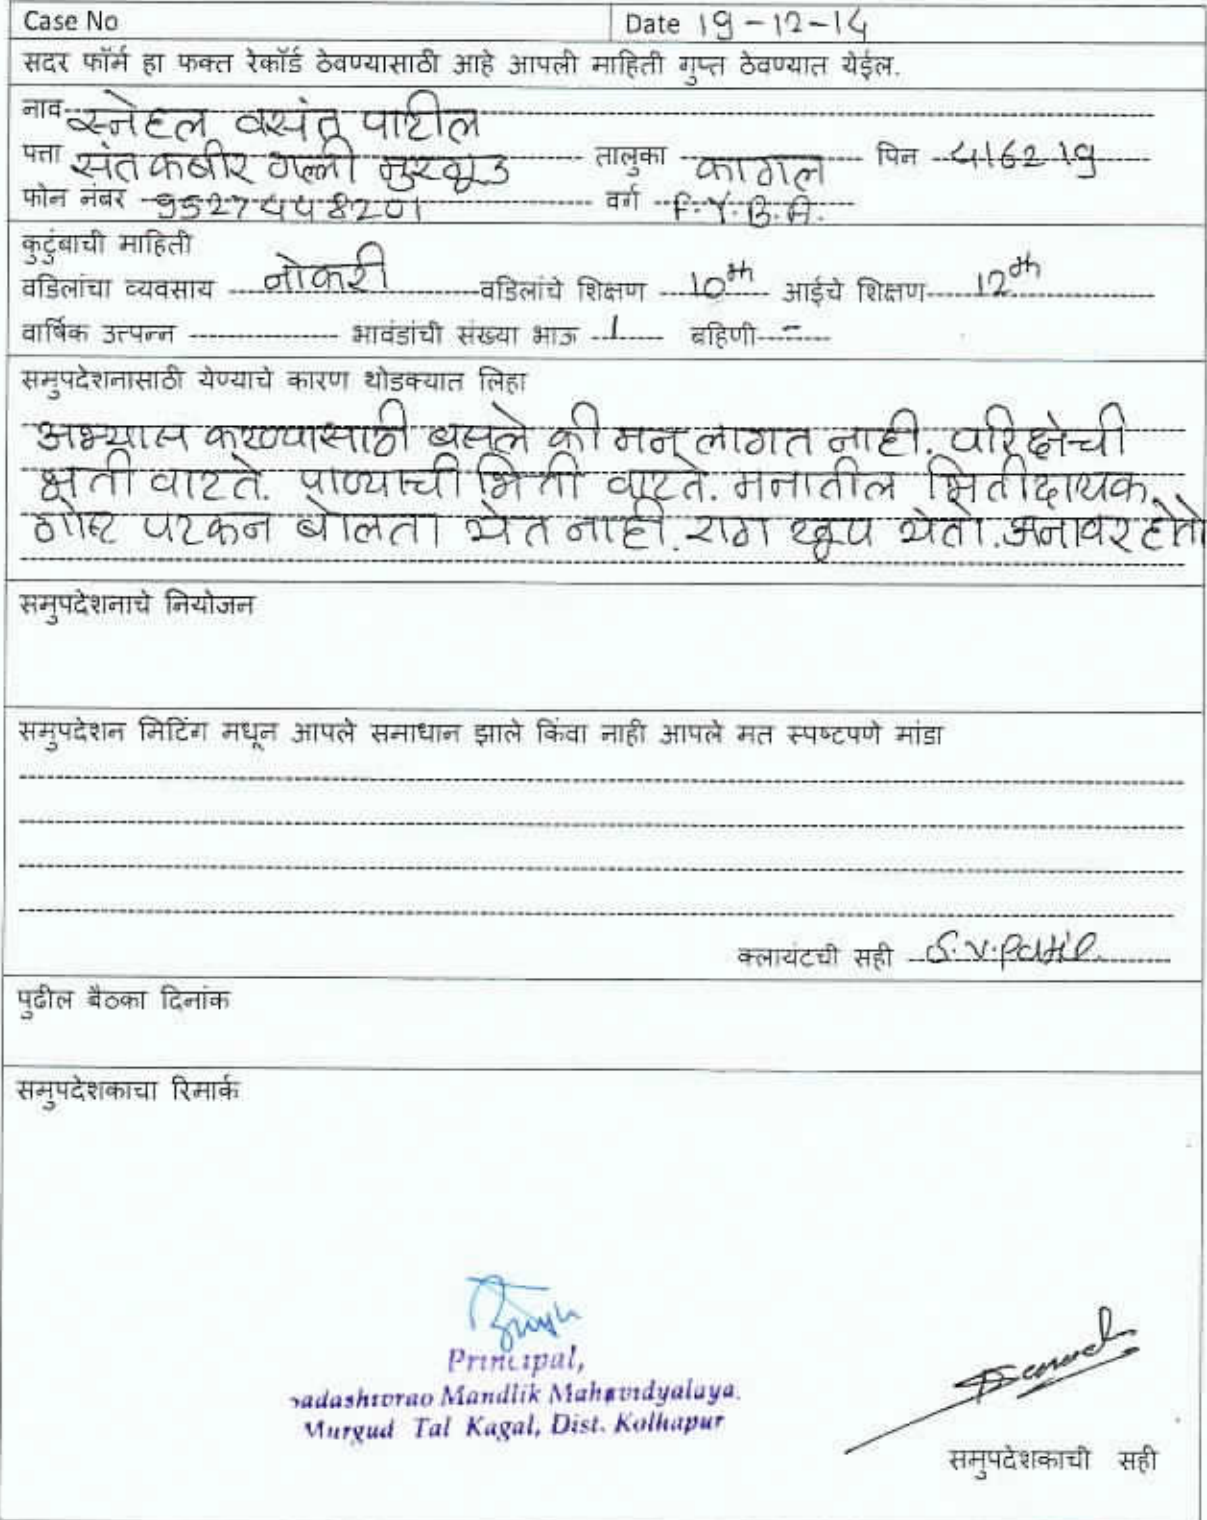 Case No Date 19-12-14
सदर फॉर्म हा फक्त रेकॉर्ड ठेवण्यासाठी आहे आपली माहिती गुप्त ठेवण्यात येईल.
नाव स्नेहल वसंत पाटील
पत्ता संत कबीर गल्ली मुरगूड तालुका कागल पिन 416219
फोन नंबर 9527448201 वर्ग F.Y.B.A.
कुटुंबाची माहिती
वडिलांचा व्यवसाय नोकरी वडिलांचे शिक्षण 10th आईचे शिक्षण 12th
वार्षिक उत्पन्न भावंडांची संख्या भाऊ 1 बहिणी -
समुपदेशनासाठी येण्याचे कारण थोडक्यात लिहा
अभ्यास करण्यासाठी बसले की मन लागत नाही. परिक्षेची
भिती वाटते. पाण्याची भिती वाटते. मनातील भितीदायक
गोष्ट पटकन बोलता येत नाही. राग खूप येतो. अनावर होतो
समुपदेशनाचे नियोजन
समुपदेशन मिटिंग मधून आपले समाधान झाले किंवा नाही आपले मत स्पष्टपणे मांडा
क्लायंटची सही S.V.Patil
पुढील बैठका दिनांक
समुपदेशकाचा रिमार्क
Principal,
Sadashivrao Mandlik Mahavidyalaya,
Murgud Tal Kagal, Dist. Kolhapur
समुपदेशकाची सही